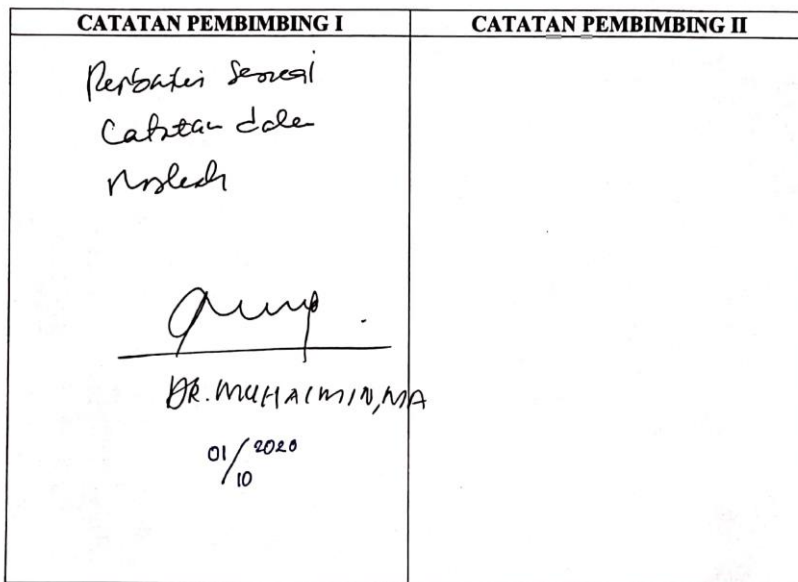 CATATAN PEMBIMBING I
CATATAN PEMBIMBING II
Perbaiki sesuai
Catatan dalam
Naskah
DR. MUHAIMIN, MA
01/10 2020